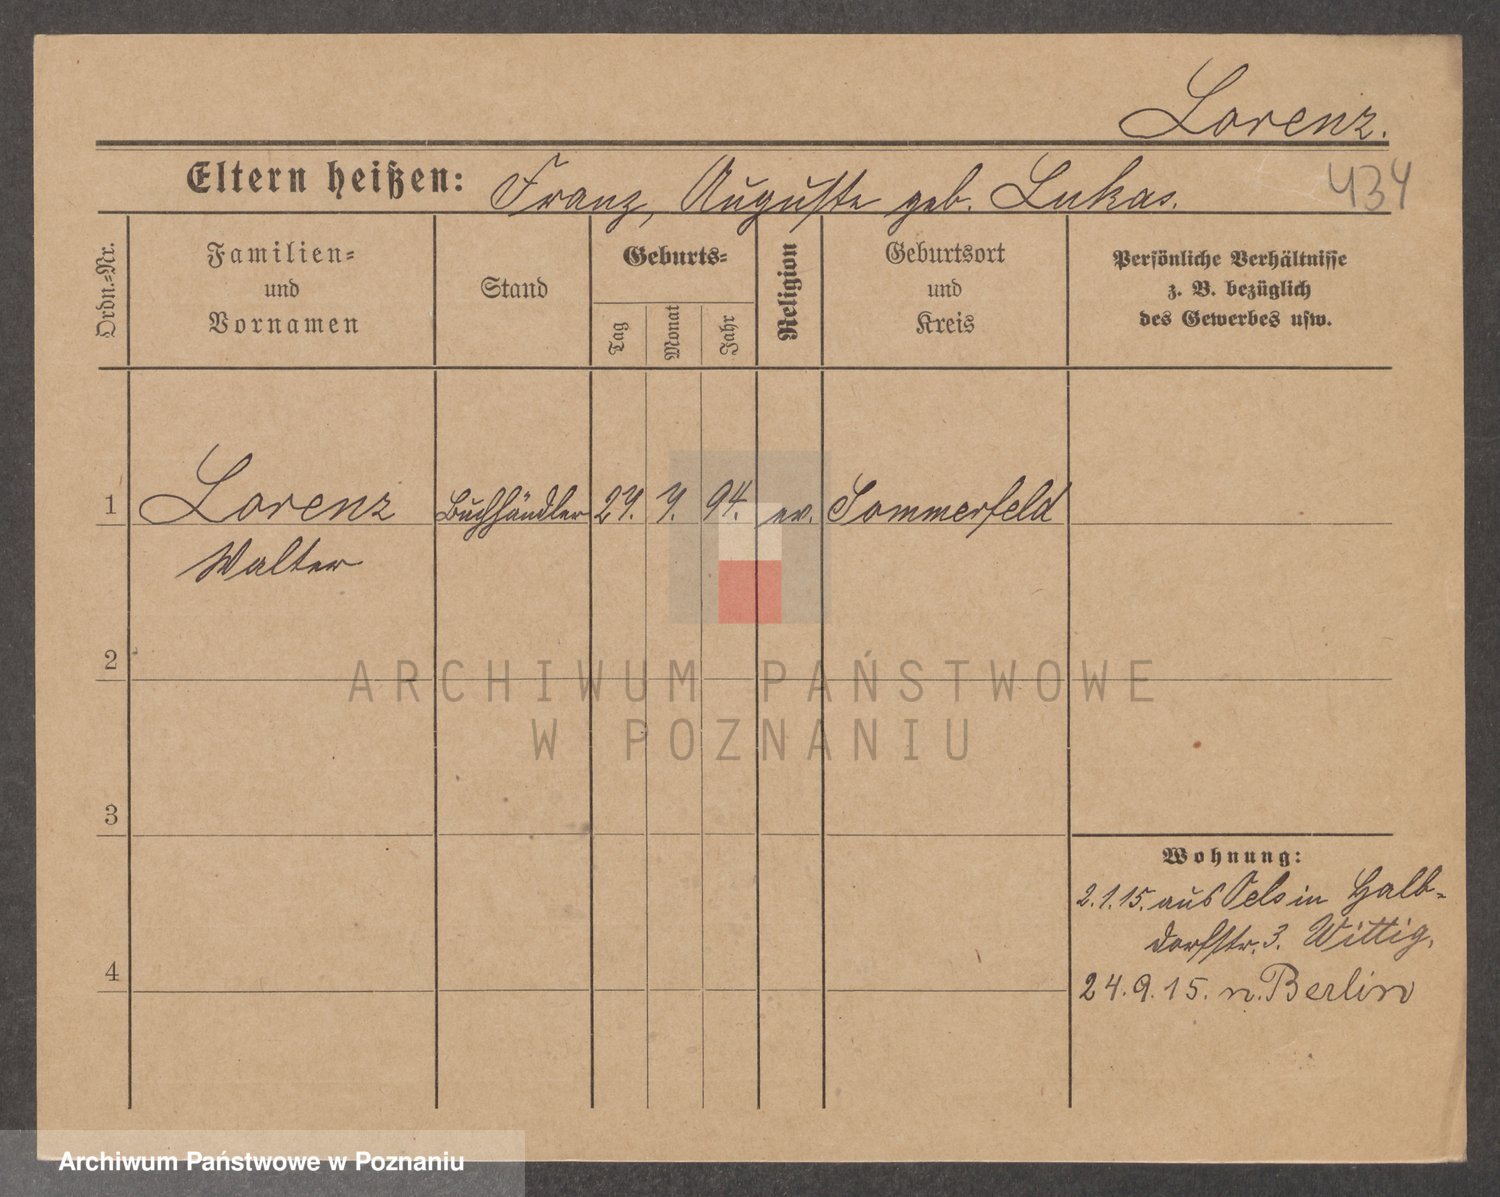 Lorenz.
Eltern heißen: Franz, Auguste geb. Lukas.
434
Ordn.-Nr.
Familien-
und
Vornamen
Stand
Geburts-
Tag
Monat
Jahr
Religion
Geburtsort
und
Kreis
Persönliche Verhältnisse
z. B. bezüglich
des Gewerbes usw.
1 Lorenz Buchhändler 27. 7. 94. ev. Sommerfeld
Walter
2
ARCHIWUM PAŃSTWOWE
W POZNANIU
3
Wohnung:
2.1.15. aus Oels in Halb-
dorfstr. 3. Wittig.
4
24.9.15. n. Berlin
Archiwum Państwowe w Poznaniu